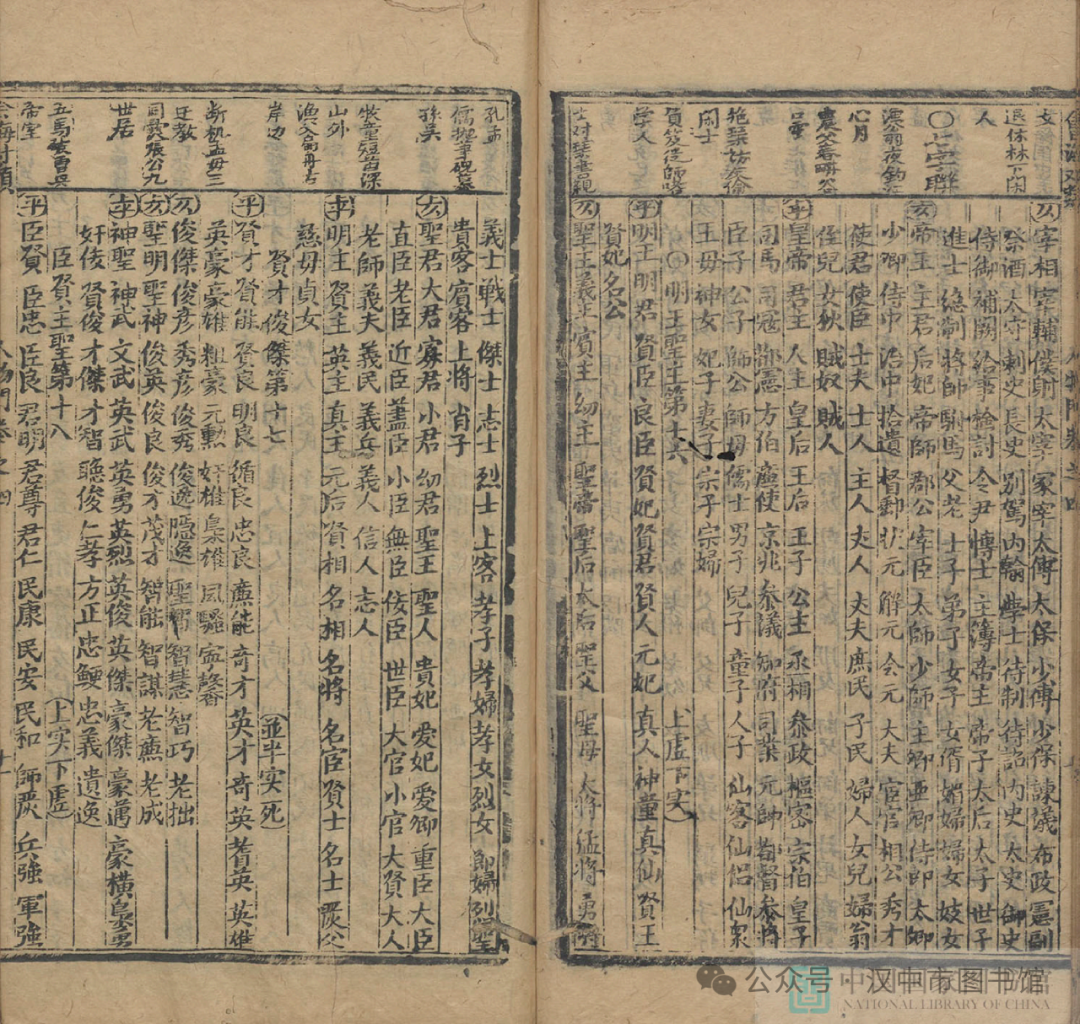 仄 宰相 宰輔 僕射 太宰 冢宰 太傅 太保 少傅 少保 諫議 布政 憲副
祭酒 太守 刺史 長史 別駕 內翰 學士 待制 待詔 內史 太史 御史
侍御 補闕 給事 檢討 令尹 博士 主簿 帝主 帝子 太后 太子 世子
進士 總制 將帥 駙馬 父老 士子 弟子 女子 女婿 婦女 妓女
仄 帝王 主君 后妃 帝師 郡公 宰臣 太師 少師 主卿 亜卿 侍郎 太卿
少卿 侍中 治中 拾遺 督郵 狀元 解元 会元 大夫 宦官 相公 秀才
使君 使臣 士夫 士人 主人 丈人 夫夫 庶民 子民 婦人 女兒 婦翁
侄兒 女狄 賊奴 賊人
平 皇帝 君主 人主 皇后 王后 王子 公主 丞相 参政 樞密 宗伯 皇子
司馬 司冠 方伯 廉使 京兆 参議 知府 司業 元帥 都督 参將
臣子 公子 師公 師母 儒士 男子 兒子 童子 人子 仙客 仙侶 仙衆
王母 神女 妃子 妻子 宗子 宗婦
〇明王聖主第十六 上虛下实
平 明王 明君 賢臣 良臣 賢妃 賢君 賢人 元妃 真人 神童 真仙 賢王
賢妃 名公
仄 聖王 義主 賓主 幼主 聖帝 聖后 太后 聖父 聖母 大將 猛將 勇將
義士 戰士 傑士 志士 烈士 上客 孝子 孝婦 孝女 烈女 節婦 烈聖
貴客 賓客 上將 肖子
仄 聖君 大君 寡君 小君 幼君 聖王 聖人 貴妃 愛妃 愛卿 重臣 大臣
直臣 老臣 近臣 藎臣 小臣 無臣 佞臣 世臣 大官 小官 大賢 大人
老師 義夫 義民 義兵 義人 信人 志人
平 明主 賢主 英主 真王 元后 賢相 名相 名將 名宦 賢士 名士 嚴父
慈母 貞女
賢才俊傑第十七 並半实死
平 賢才 賢能 賢良 明良 循良 忠良 廉能 奇才 英才 奇英 耆英 英雄
英豪 豪雄 粗豪 元勲 奸雄 梟雄 風騷 寧馨
仄 俊傑 俊彦 秀彦 俊秀 俊逸 隱逸 聖儒 智慧 智巧 老拙
仄 聖明 聖神 俊英 俊良 俊才 茂才 智能 智謀 老蒼 老成
平 神聖 神武 文武 英武 英勇 英烈 英俊 英傑 豪傑 豪邁 豪橫
奸佞 賢俊 才傑 才智 聰俊 仁孝 方正 忠鯁 忠義 遺逸
臣賢主聖第十八 上实下虛
平 臣賢 臣忠 臣良 君明 君尊 君仁 民康 民安 民和 師嚴 兵強 軍強
退休林下闲
人
〇七字聯
漁翁夜釣江
心月
農父春畊谷
口雲
閨士
負笈從師啓
学人
孔孟
孫吳
牧童短笛深
山外
漁父
岸边
断机孟母三
迁教
同爨張公九
世居
帝室
公众号 · 汉中市图书馆
NATIONAL LIBRARY OF CHINA